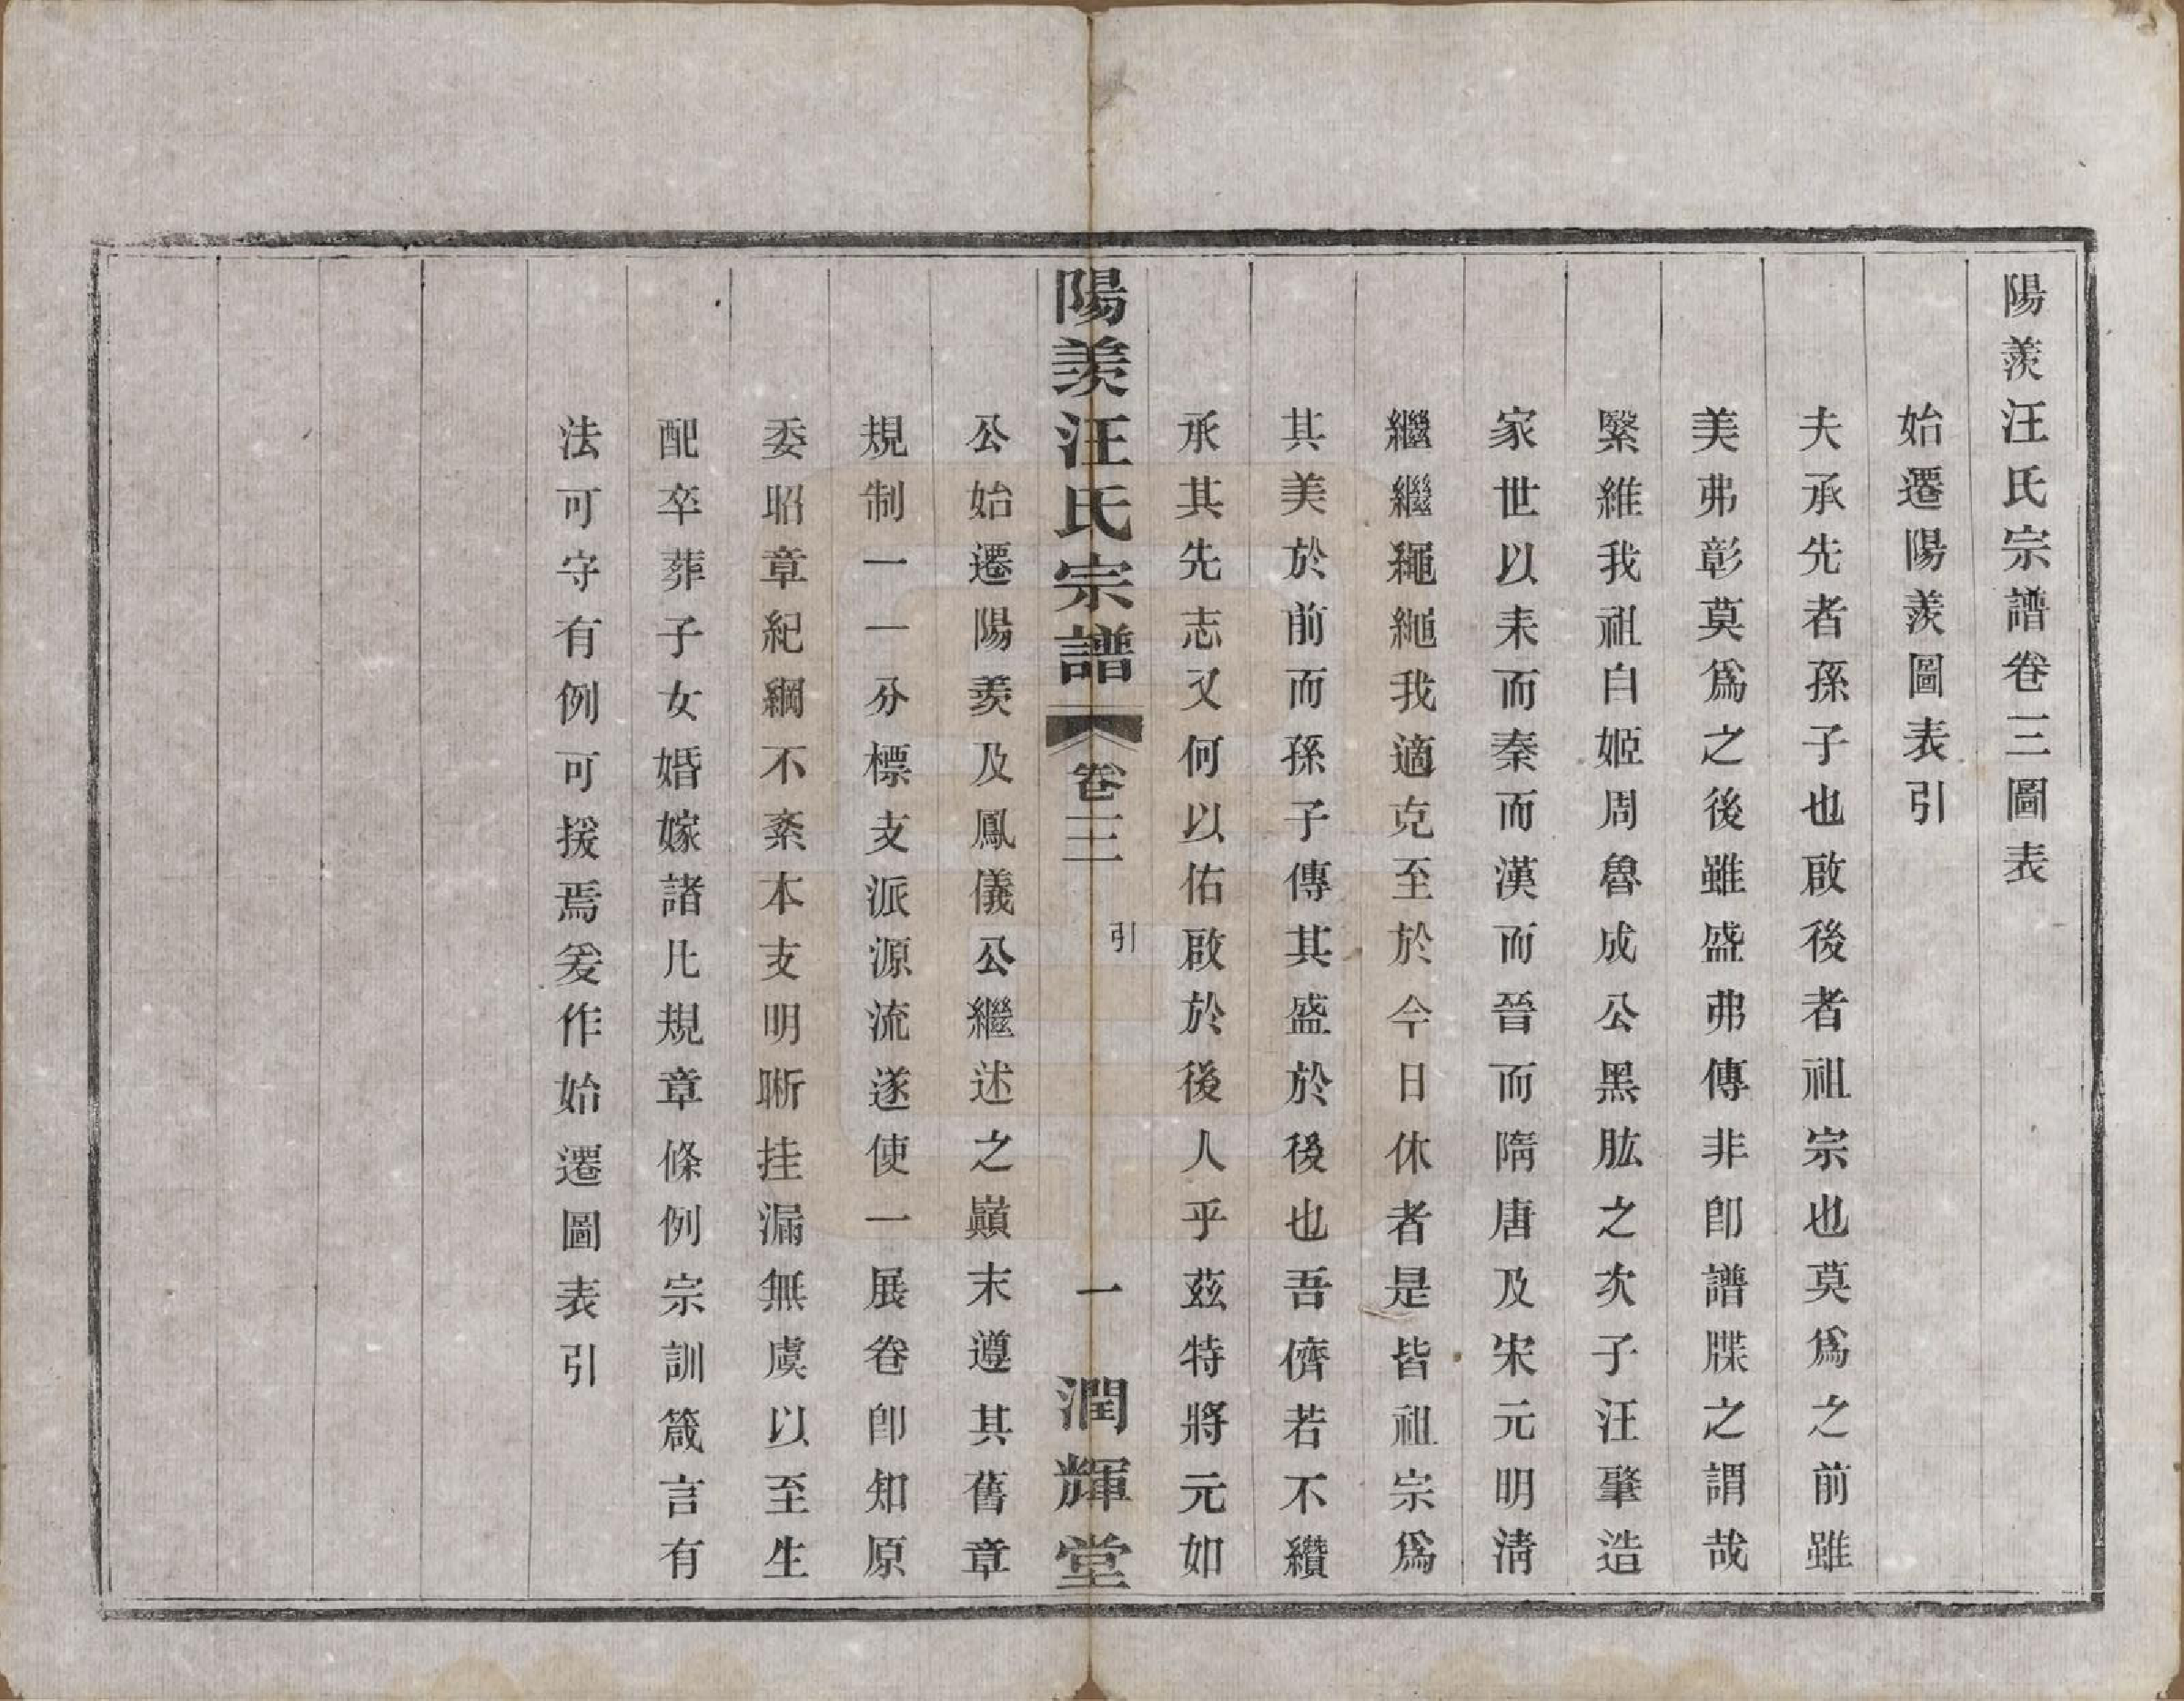 陽羨汪氏宗譜卷三圖表
始遷陽羨圖表引
夫承先者孫子也啟後者祖宗也莫爲之前雖
美弗彰莫爲之後雖盛弗傳非卽譜牒之謂哉
緊維我祖自姬周魯成公黑肱之次子汪肇造
家世以来而秦而漢而晉而隋唐及宋元明淸
繼繼繩繩我適克至於今日休者是皆祖宗爲
其美於前而孫子傳其盛於後也吾儕若不纘
承其先志又何以佑啟於後人乎茲特將元如
陽羨汪氏宗譜 卷三 引 一 潤輝堂
公始遷陽羨及鳳儀公繼述之巔末遵其舊章
規制一一分標支派源流遂使一展卷卽知原
委昭章紀綱不紊本支明晰挂漏無虞以至生
配卒葬子女婚嫁諸凡規章條例宗訓箴言有
法可守有例可援焉爰作始遷圖表引